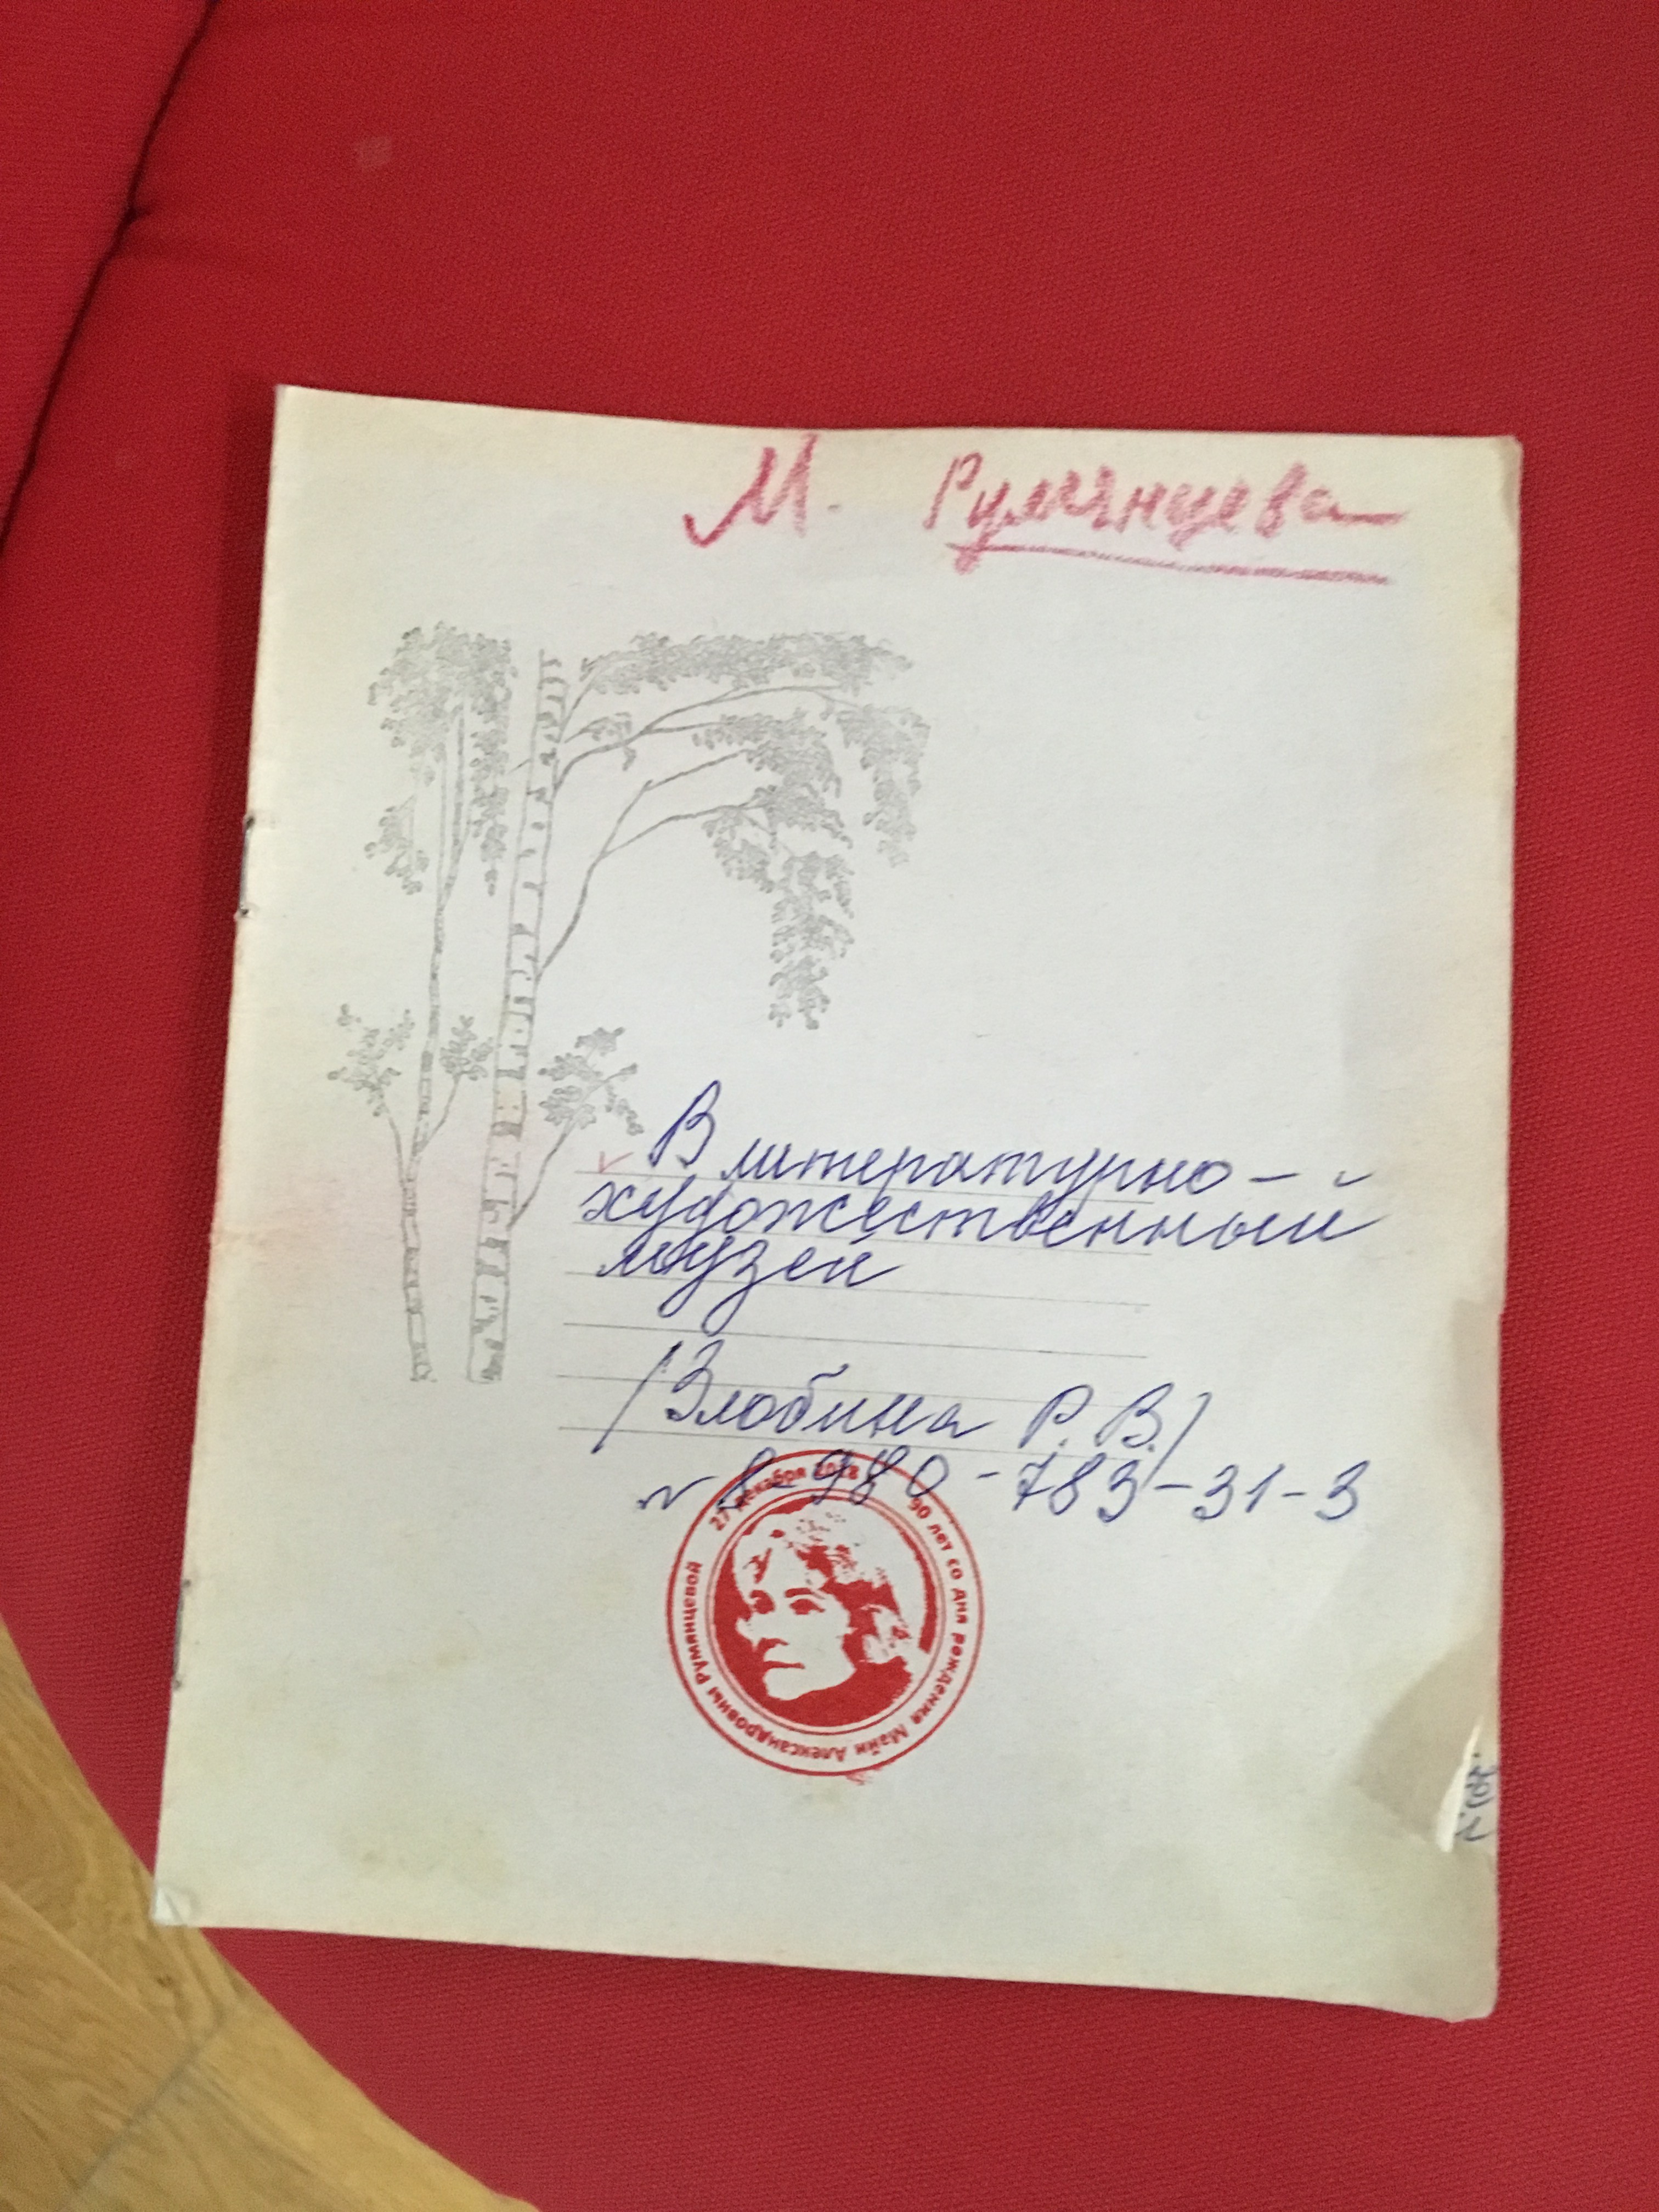 М. Румянцева
В литературно-
художественный
музей
/Злобина Р. В./
8-980-783-31-3
27 декабря 2018
90 лет со дня рождения Майи Александровны Румянцевой